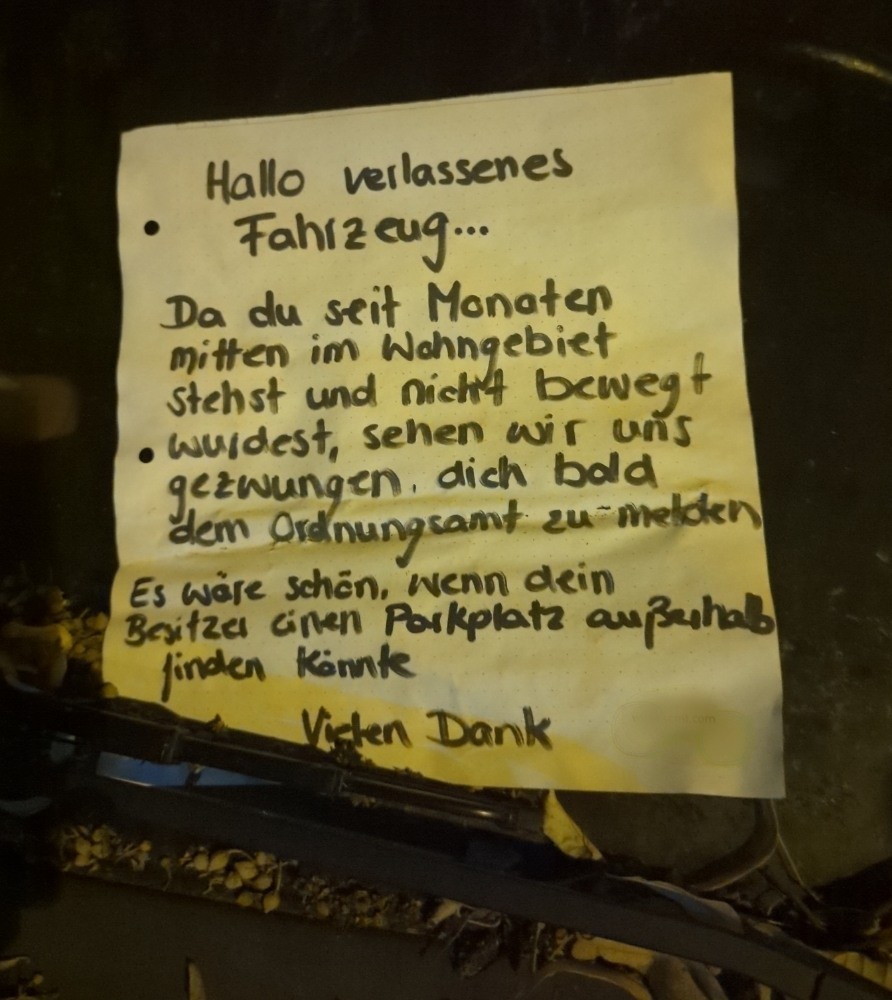 Hallo verlassenes
Fahrzeug...
Da du seit Monaten
mitten im Wohngebiet
stehst und nicht bewegt
wurdest, sehen wir uns
gezwungen, dich bald
dem Ordnungsamt zu melden
Es wäre schön, wenn dein
Besitzer einen Parkplatz außerhalb
finden könnte
Vielen Dank